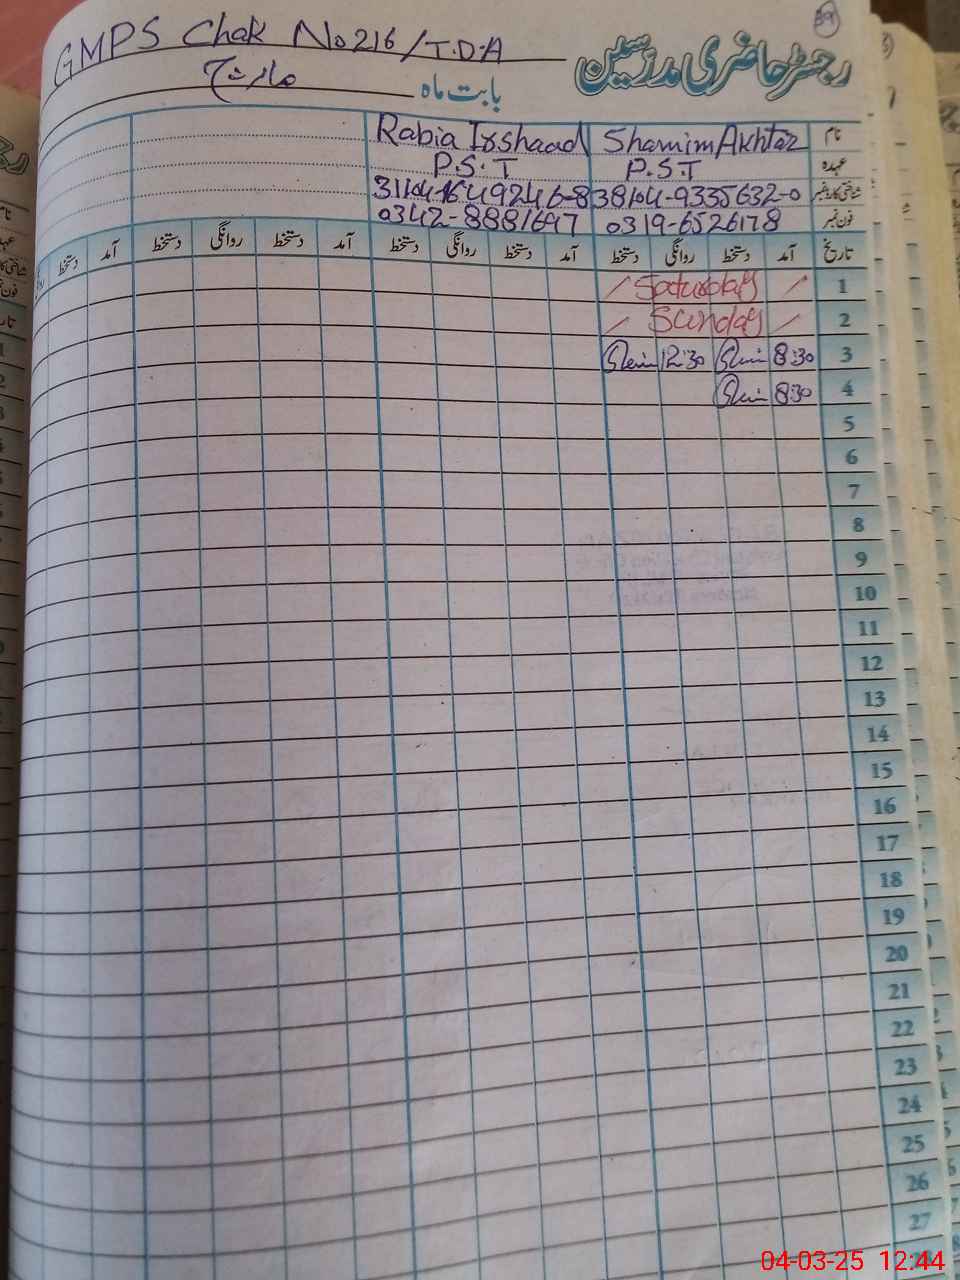 39
GMPS Chak No 216/T.D.A
رجسٹر حاضری مدرسین
بابت ماہ مارچ
نام Shamim Akhtar Rabia Irshaad
عہدہ P.S.T P.S.T
شناختی کارڈ نمبر 38104-9335632-0 31104-1649246-8
فون نمبر 0319-6526178 0342-8881697
تاریخ آمد دستخط روانگی دستخط آمد دستخط روانگی دستخط آمد دستخط روانگی دستخط آمد دستخط
1 Saturday
2 Sunday
3 8:30 12:30
4 8:30
5
6
7
8
9
10
11
12
13
14
15
16
17
18
19
20
21
22
23
24
25
26
27
28
04-03-25 12:44